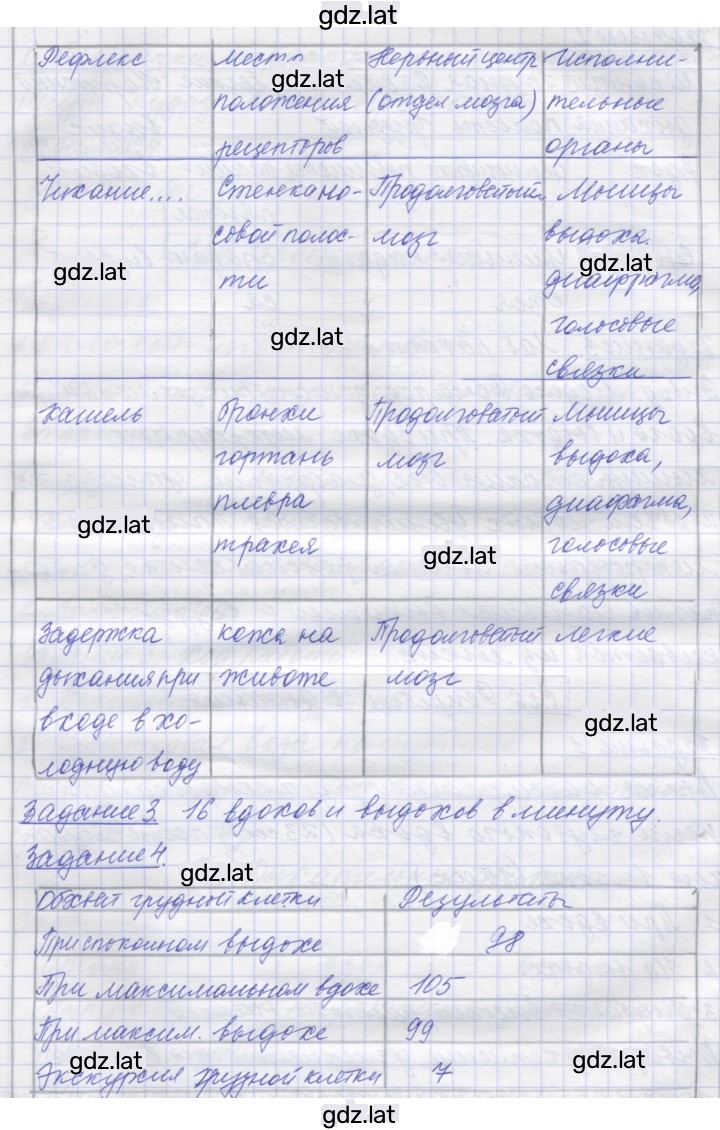 gdz.lat
Рефлекс Место Нервный центр Исполни-
gdz.lat
положения (отдел мозга) тельные
рецепторов органы
Чихание.... Стенка но- Продолговатый Мышцы
совой полос- мозг выдоха.
gdz.lat gdz.lat
ти диафрагма,
голосовые
gdz.lat
связки
Кашель Бронхи Продолговатый Мышцы
гортань мозг выдоха,
плевра диафрагма,
gdz.lat
трахея голосовые
gdz.lat
связки
Задержка кожа на Продолговатый легкие
дыхания при животе мозг
входе в хо-
gdz.lat
лодную воду
Задание 3. 16 вдохов и выдохов в минуту.
Задание 4.
gdz.lat
Обхват грудной клетки Результаты
При спокойном выдохе 98
При максимальном вдохе 105
При максим. выдохе 99
gdz.lat gdz.lat
Экскурсия грудной клетки 7
gdz.lat